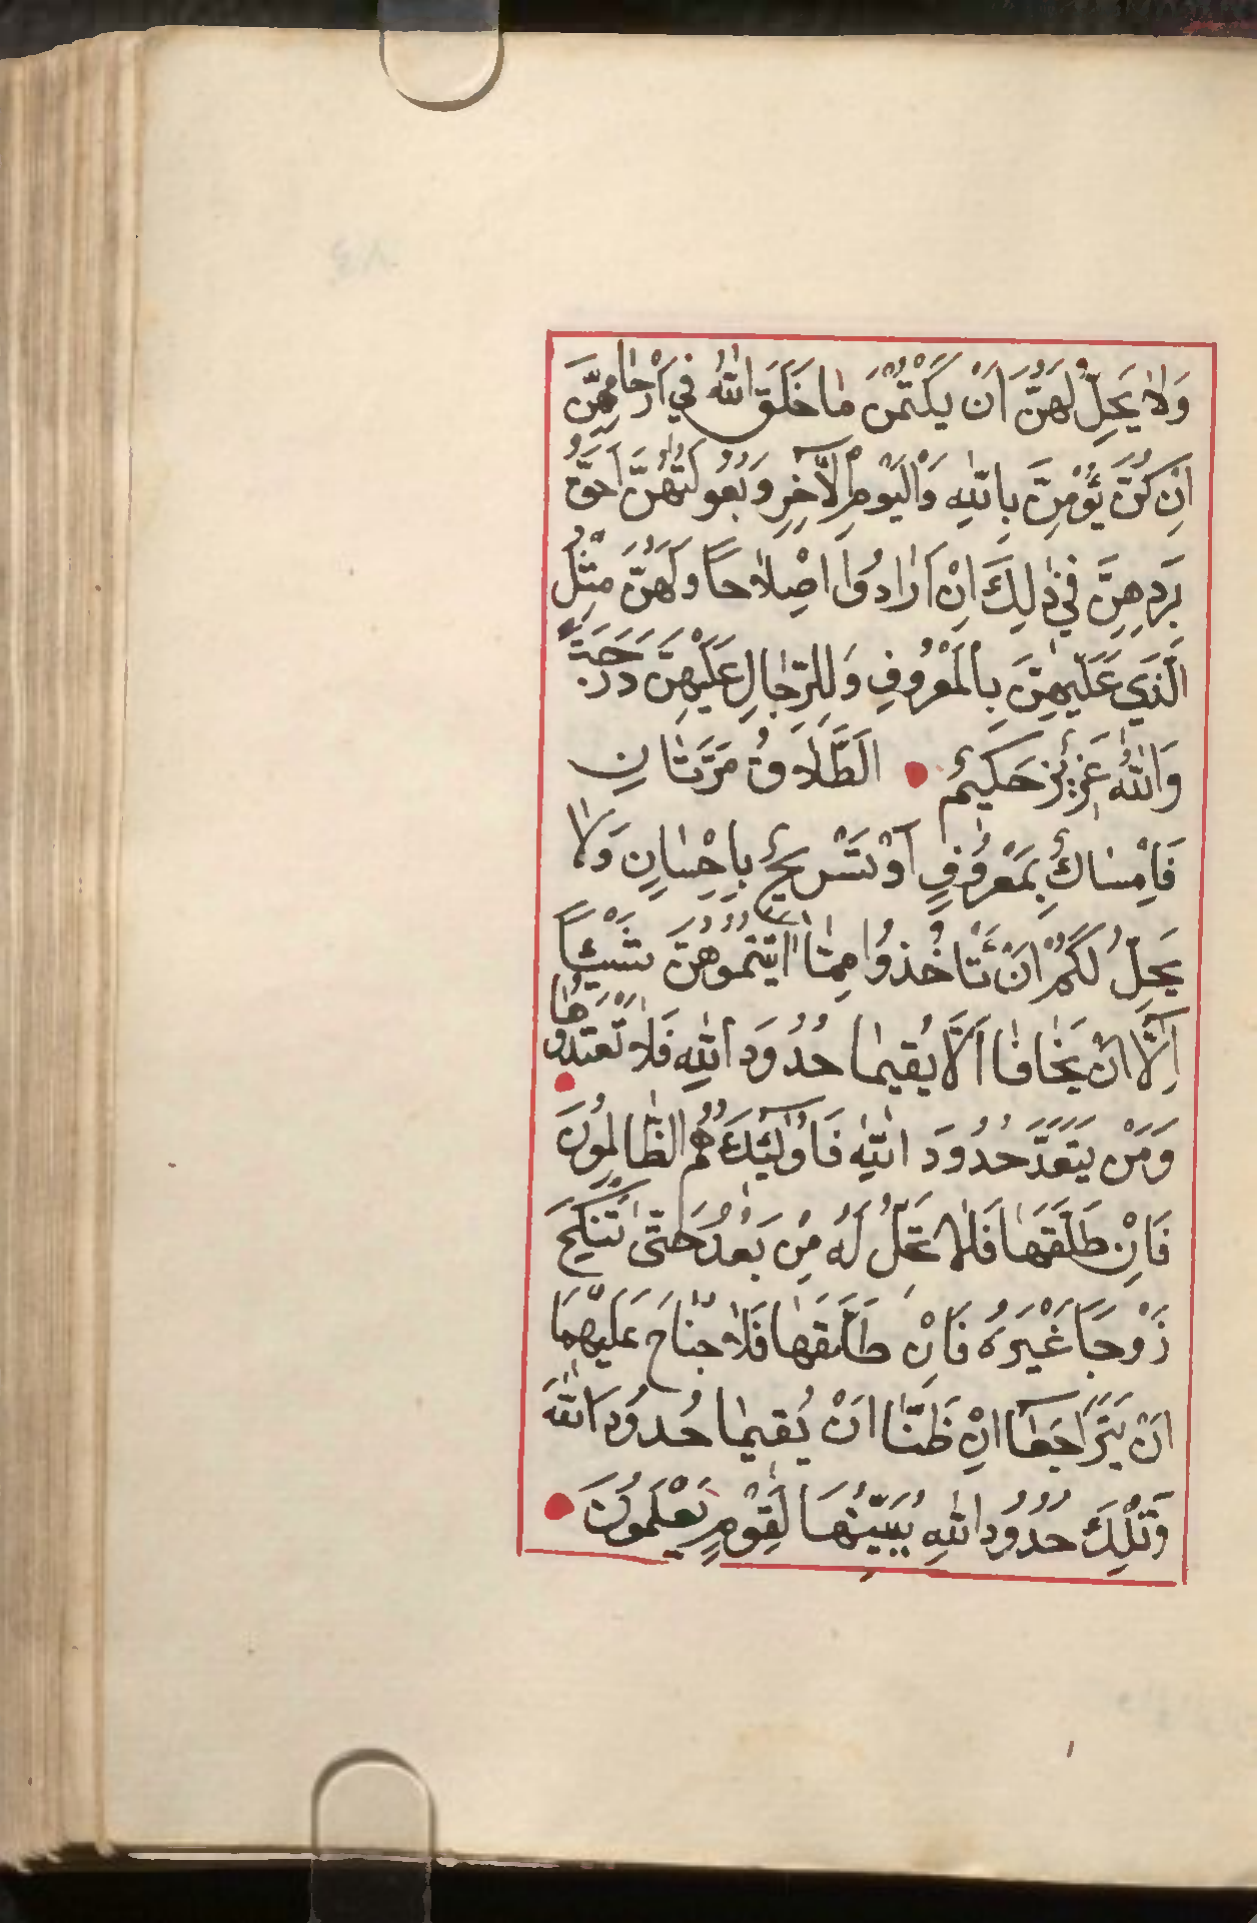 وَلَا يَحِلُّ لَهُنَّ اَنْ يَكْتُمْنَ مَا خَلَقَ اللّٰهُ فِي اَرْحَامِهِنَّ
اِنْ كُنَّ يُؤْمِنَّ بِاللّٰهِ وَالْيَوْمِ الْاٰخِرِ وَبُعُولَتُهُنَّ اَحَقُّ
بِرَدِهِنَّ فِي ذٰلِكَ اِنْ اَرَادُوا اِصْلَاحًا وَلَهُنَّ مِثْلُ
الَّذِي عَلَيْهِنَّ بِالْمَعْرُوفِ وَلِلرِّجَالِ عَلَيْهِنَّ دَرَجَةٌ
وَاللّٰهُ عَزِيزٌ حَكِيمٌ اَلطَّلَاقُ مَرَّتَانِ
فَاِمْسَاكٌ بِمَعْرُوفٍ اَوْ تَسْرِيحٌ بِاِحْسَانٍ وَلَا
يَحِلُّ لَكُمْ اَنْ تَاْخُذُوا مِمَّا اٰتَيْتُمُوهُنَّ شَيْئًا
اِلَّا اَنْ يَخَافَا اَلَّا يُقِيمَا حُدُودَ اللّٰهِ فَلَا تَعْتَدُوهَا
وَمَنْ يَتَعَدَّ حُدُودَ اللّٰهِ فَاُولٰٓئِكَ هُمُ الظَّالِمُونَ
فَاِنْ طَلَّقَهَا فَلَا تَحِلُّ لَهُ مِنْ بَعْدُ حَتّٰى تَنْكِحَ
زَوْجًا غَيْرَهُ فَاِنْ طَلَّقَهَا فَلَا جُنَاحَ عَلَيْهِمَا
اَنْ يَتَرَاجَعَا اِنْ ظَنَّا اَنْ يُقِيمَا حُدُودَ اللّٰهِ
وَتِلْكَ حُدُودُ اللّٰهِ يُبَيِّنُهَا لِقَوْمٍ يَعْلَمُونَ